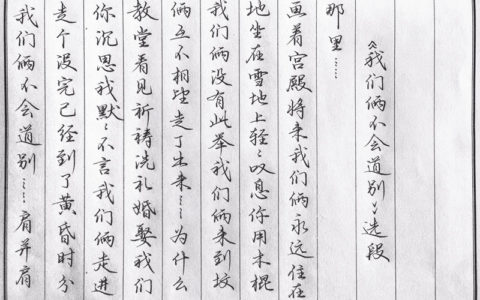 我们俩不会道别……肩并肩
走个没完已经到了黄昏时分
你沉思我默〻不言我们俩走进
教堂看见祈祷洗礼婚娶我们
俩互不相望走了出来……为什么
我们俩没有此举我们俩来到坟
地坐在雪地上轻〻叹息你用木棍
画着宫殿将来我们俩永远住在
那里……
《我们俩不会道别》选段